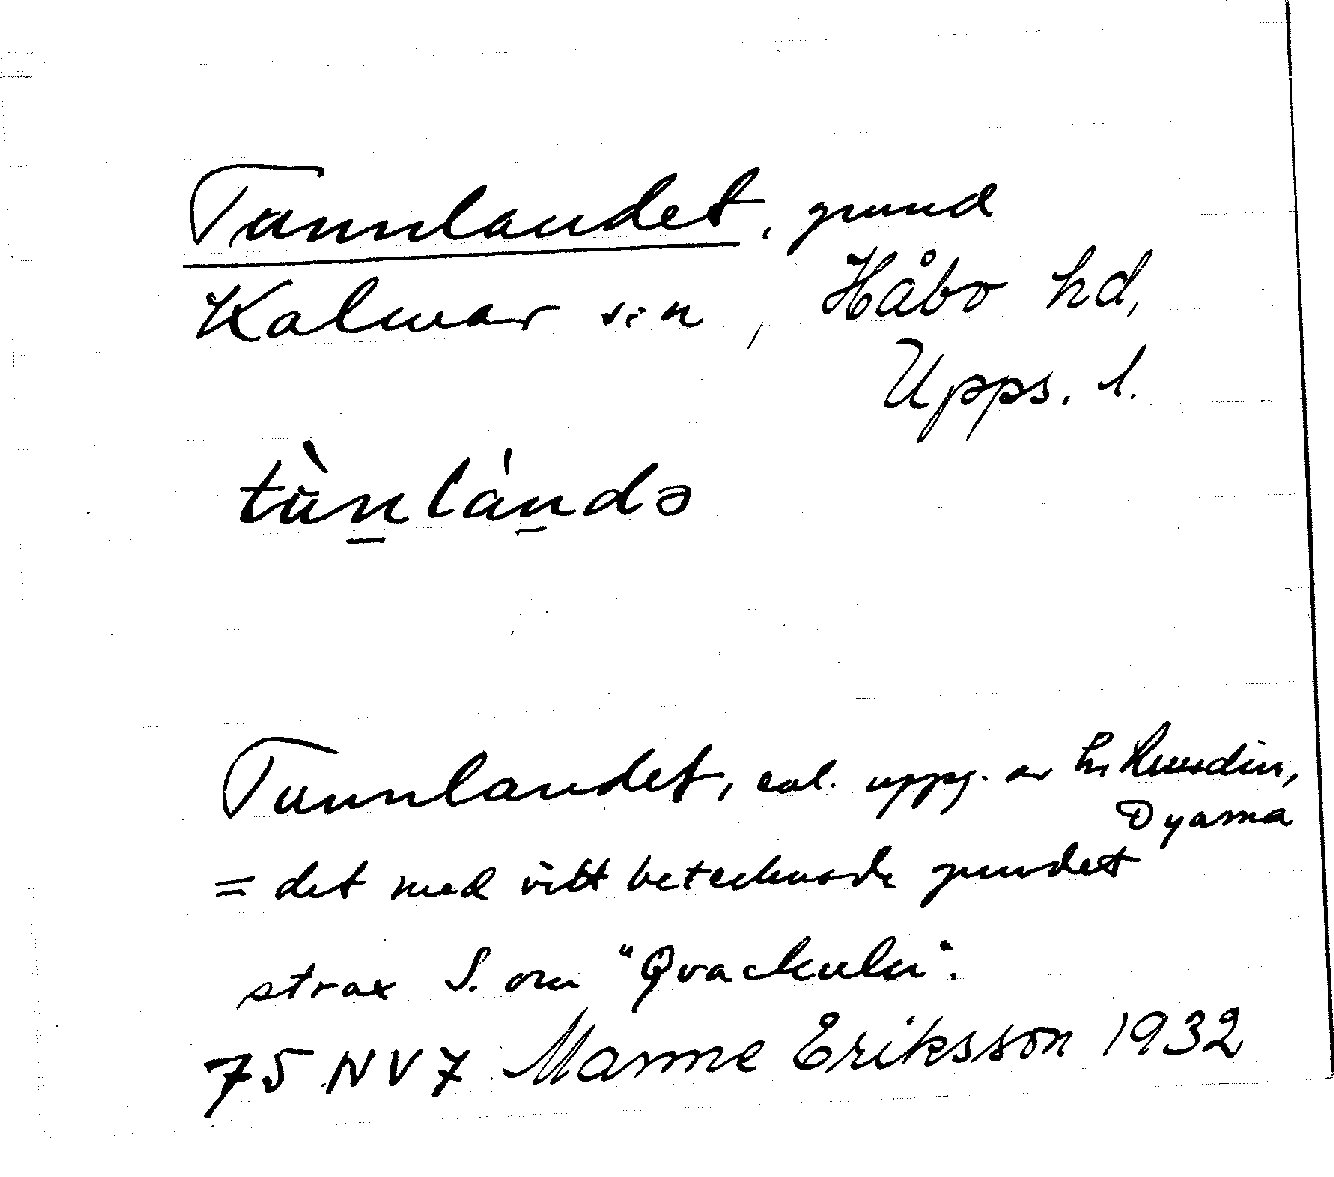 Tunnlandet, grund
Kalmar s:n, Håbo hd,
Upps. l.
tùn̲lán̲də
Tunnlandet, enl. uppg. av hr Rundin,
Dyarna
= det med vitt betecknade grundet
strax S. om "Qvackulen".
75 NV 7 Manne Eriksson 1932